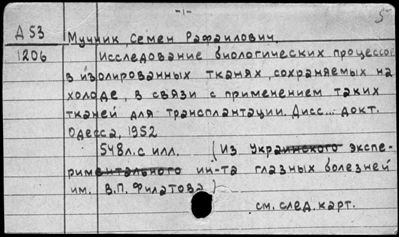 -1- 5
А 53 Мучник, Семен Рафаилович,
1206 Исследование биологических процессов
в изолированных тканях, сохраняемых на
холоде, в связи с применением таких
тканей для трансплантации. Дисс... докт.
Одесса, 1952
548л. с илл. (Из Украинского экспе-
риментального ин-та глазных болезней
им. В.П. Филатова)
см. след. карт.